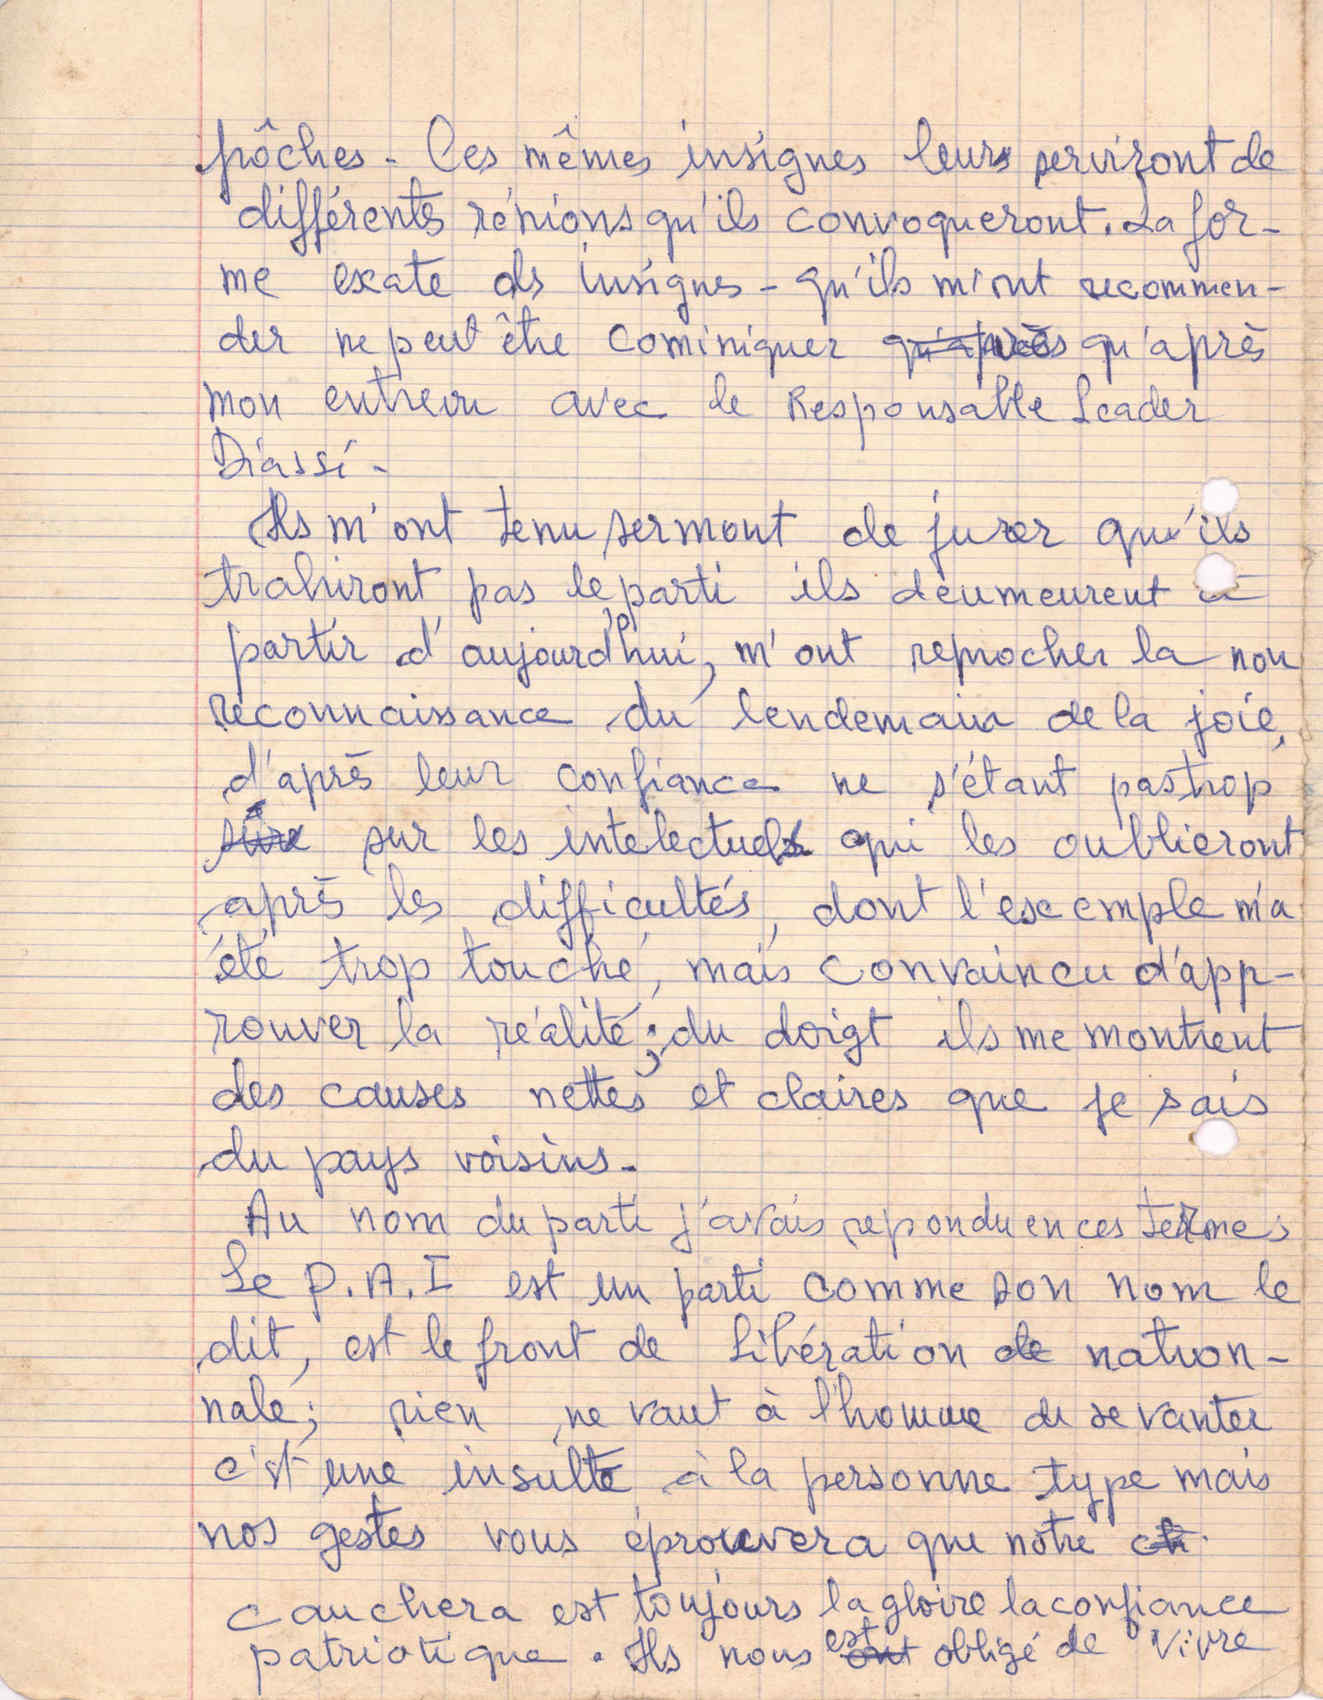 pôches - Ces mêmes insignes leurs serviront de
différents rénions qu'ils convoqueront. La for-
me exate ds insignes - qu'ils m'ont recommen-
der ne peut être cominiquer qu'après qu'après
mon entrevu avec le Responsable Leader
Diassi -
Ils m'ont tenu sermont de jurer qu'ils
trahiront pas le parti ils deumeurent à
partir d'aujourd'hui, m'ont reprocher la non
reconnaissance du lendemain de la joie,
d'après leur confiance ne s'étant pas trop
sûre sur les intelectuels qui les oublieront
après les difficultés, dont l'exemple m'a
été trop touché, mais convaincu d'app-
rouver la réalité; du doigt ils me montrent
des causes nettes et claires que je sais
du pays voisins -
Au nom du parti j'avais repondu en ces termes
Le P.A.I est un parti comme son nom le
dit, est le front de Libération de nation-
nale; rien ne vaut à l'homme de se vanter
c'st une insulte à la personne type mais
nos gestes vous éprouvera que notre
cauchera est toujours la gloire la confiance
patriotique. Ils nous est ont obligé de vivre